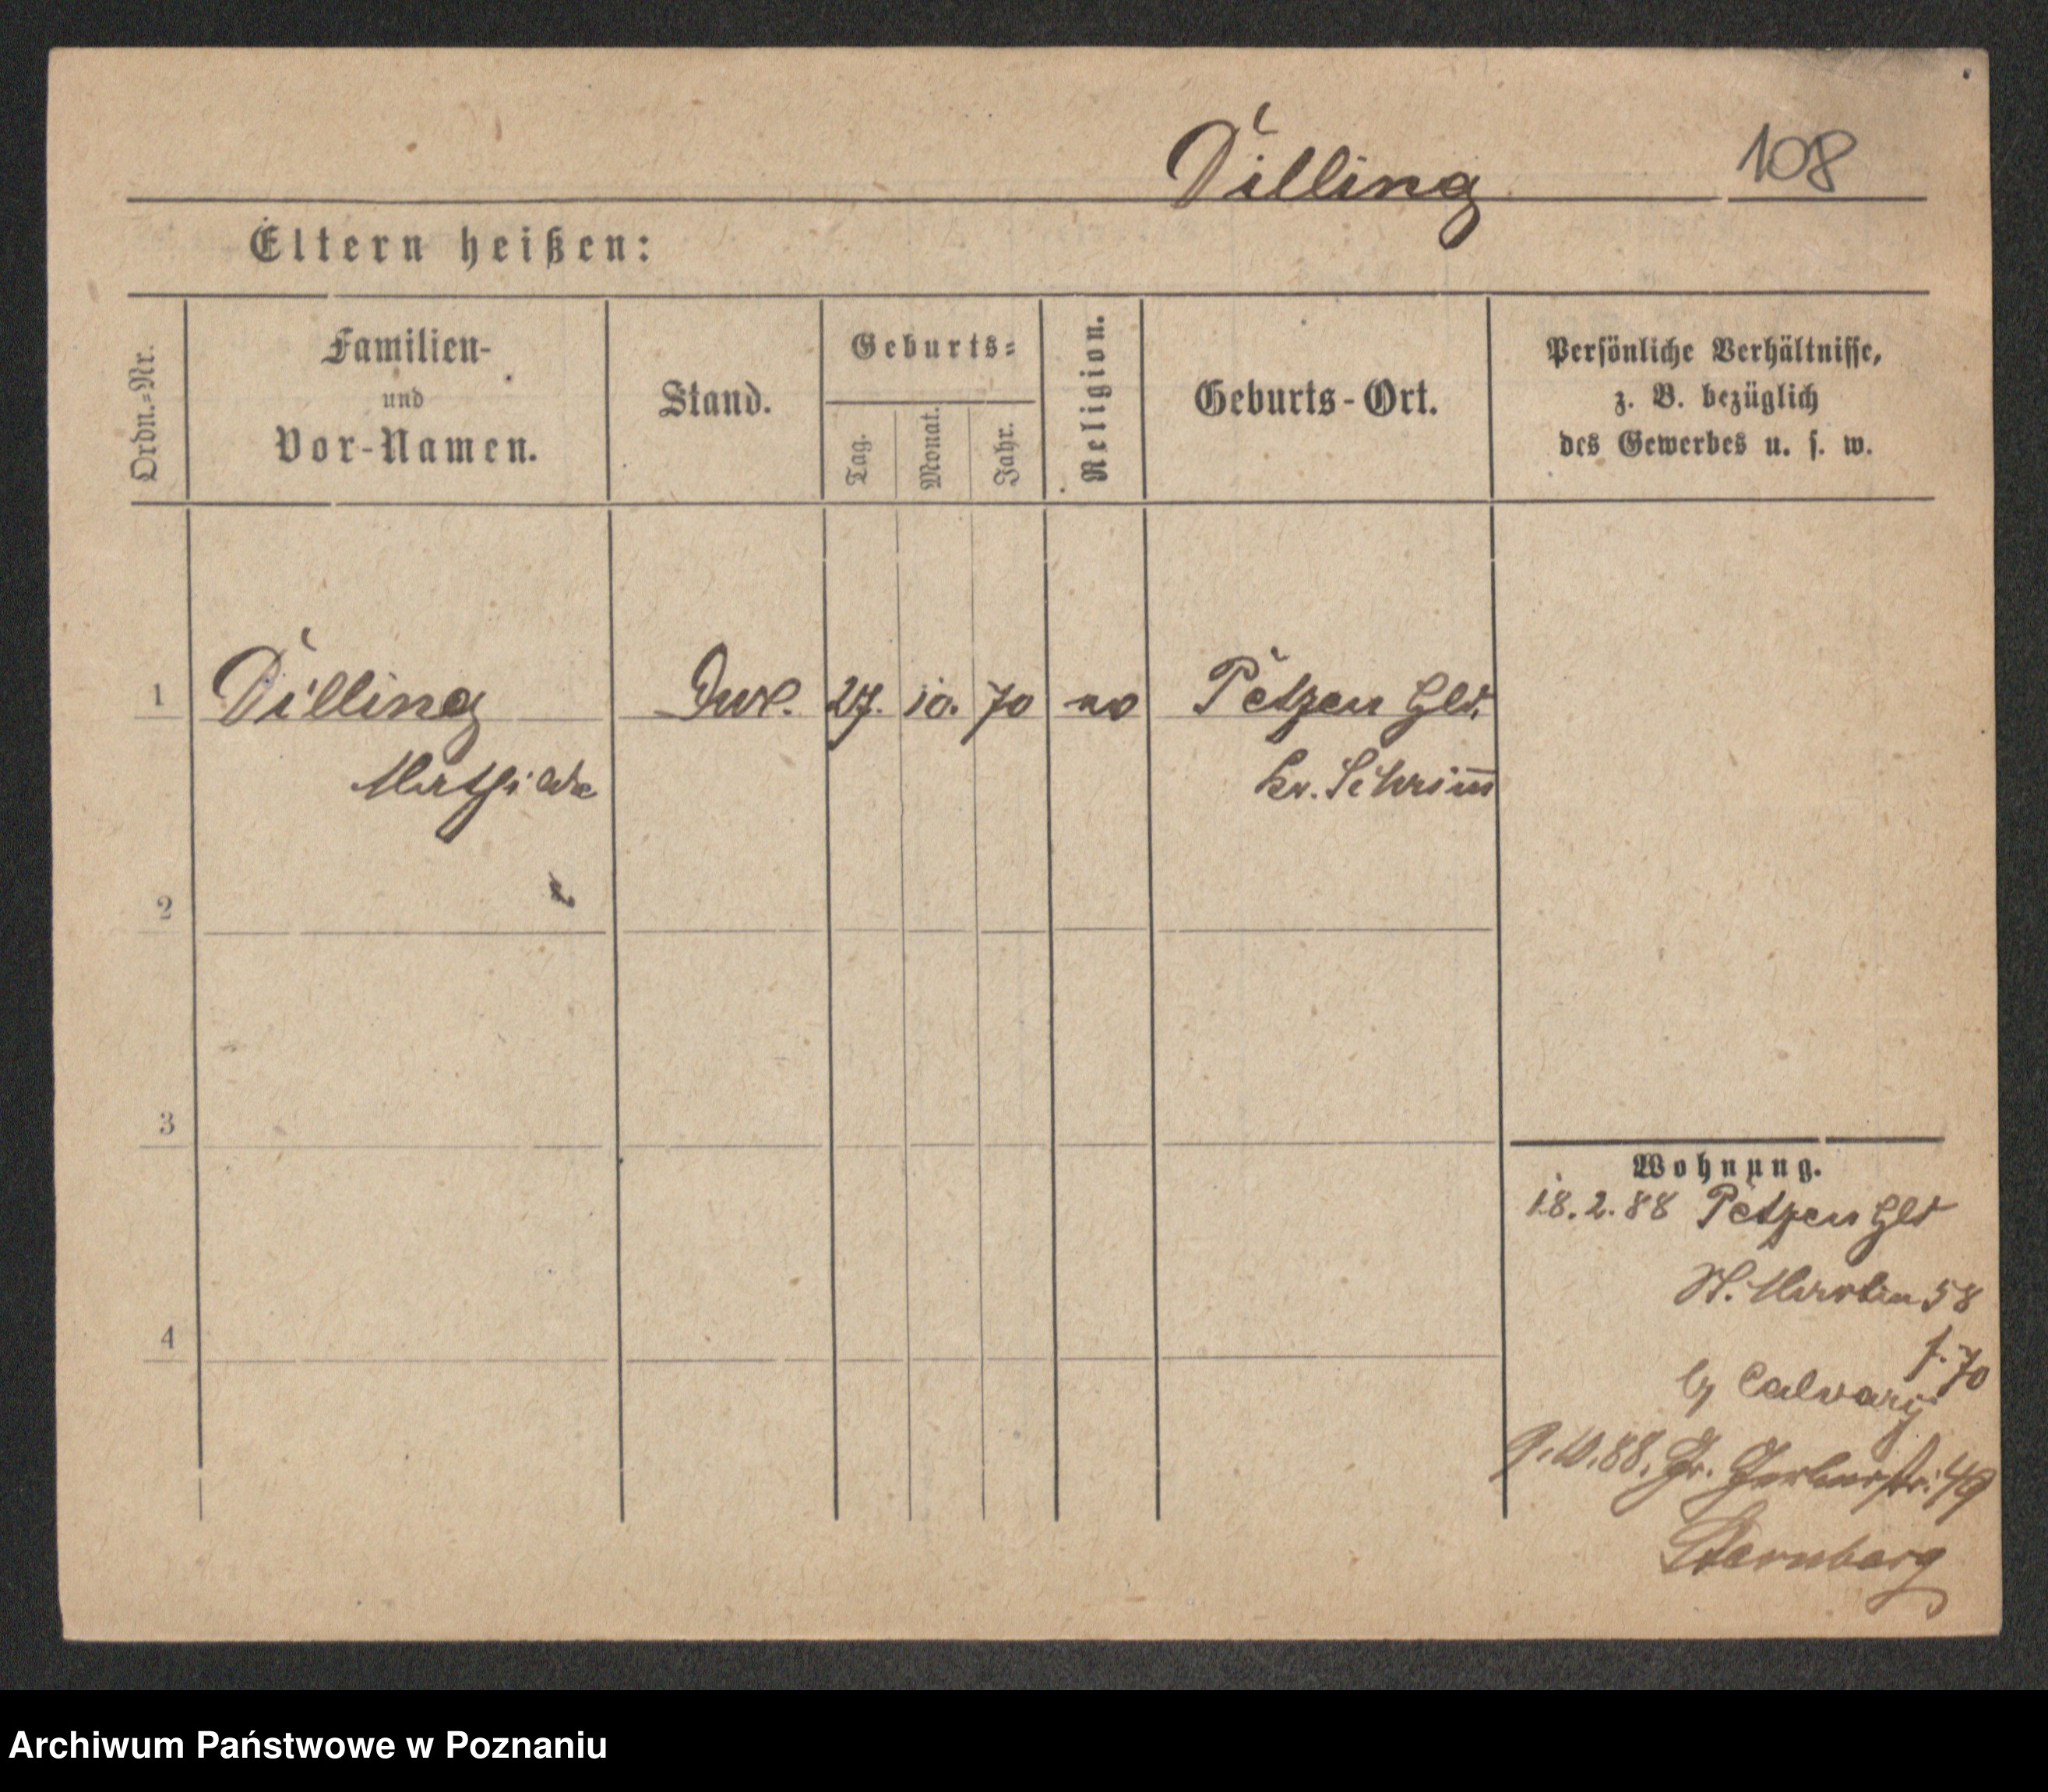 Dilling 108
Eltern heißen:
Ordn.-Nr.
Familien-
und
Vor-Namen.
Stand.
Geburts-
Tag.
Monat.
Jahr.
Religion.
Geburts-Ort.
Persönliche Verhältnisse,
z. B. bezüglich
des Gewerbes u. s. w.
1 Dilling 27. 10. 70 Petzen Hld.
Mathilde Kr. Schrim̅
2
3
4
Wohnung.
18.2.88 Petzen Hld
St. Martin 58
f. 70
by Calvary
9.10.88. Gr. Gerberstr. 49
Sternberg
Archiwum Państwowe w Poznaniu